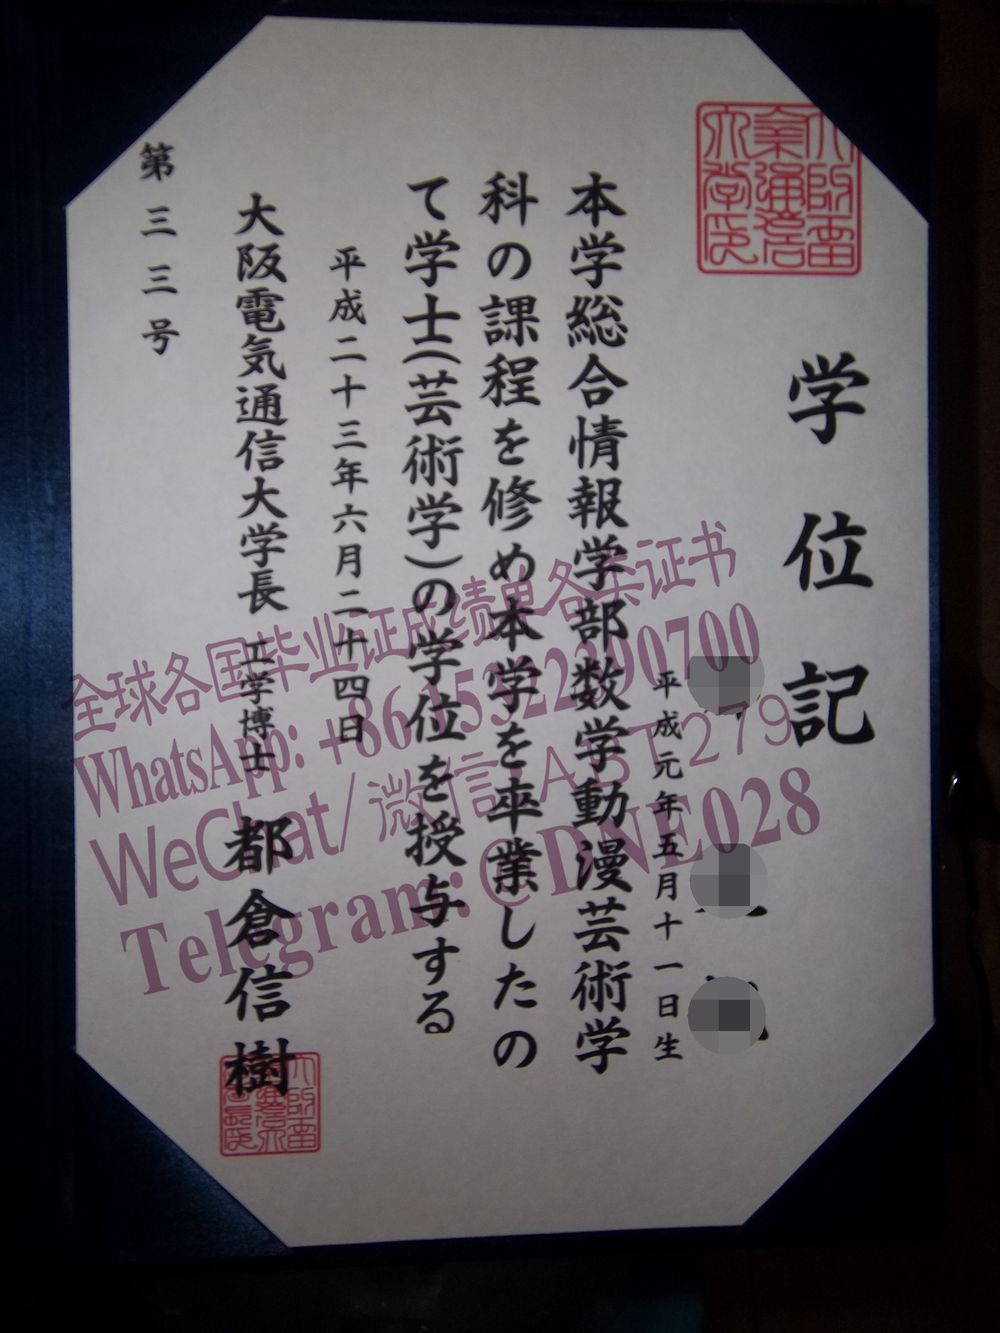 学位記
平成元年五月十一日生
本学総合情報学部数学動漫芸術学
科の課程を修め本学を卒業したの
て学士(芸術学)の学位を授与する
平成二十三年六月二十四日
大阪電気通信大学長 工学博士 都倉信樹
第三三号
全球各国毕业证成绩单各类证书
WhatsApp: +86 15322390700
WeChat/微信:ABT279
Telegram:@DNE028